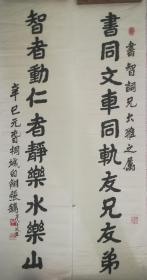 書智詞兄大雅之屬
書同文車同軌友兄友弟
智者動仁者靜樂水樂山
辛巳元旦桐城白翎張鶴